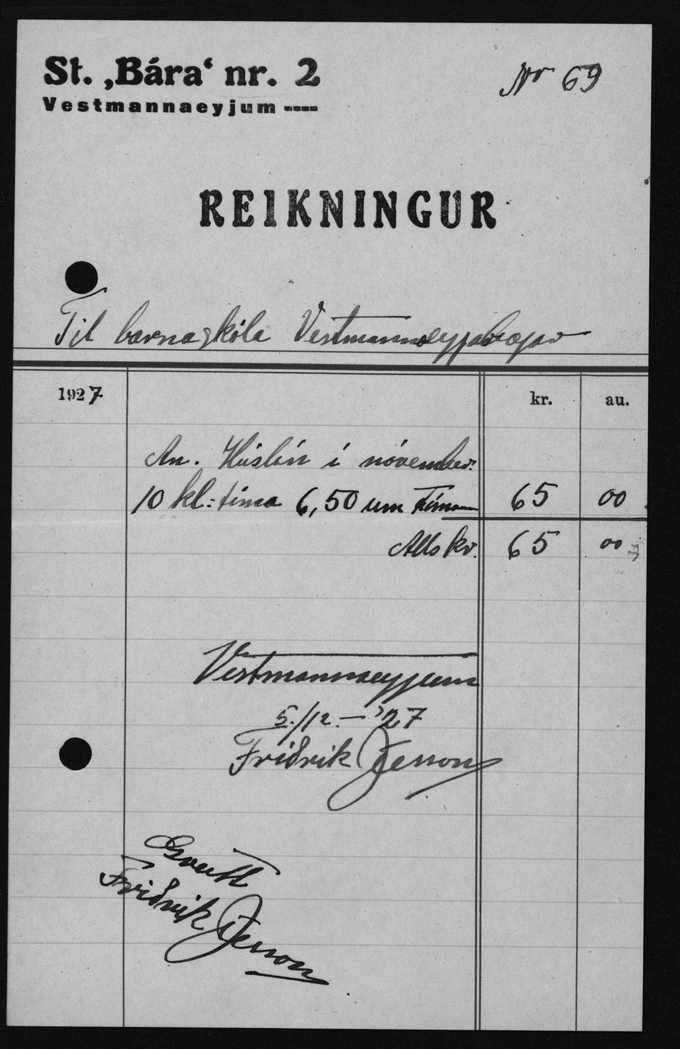 St. ‚Bára‘ nr. 2
Vestmannaeyjum
Nr 69
REIKNINGUR
Til barnaskóla Vestmannaeyjabæjar
1927 kr. au.
An. Húslán í nóvember.
10 kl: tíma 6,50 um tímann 65 00
Alls kr. 65 00
Vestmannaeyjum
5./12. – '27
Friðrik Jesson
Kvitt
Friðrik Jesson